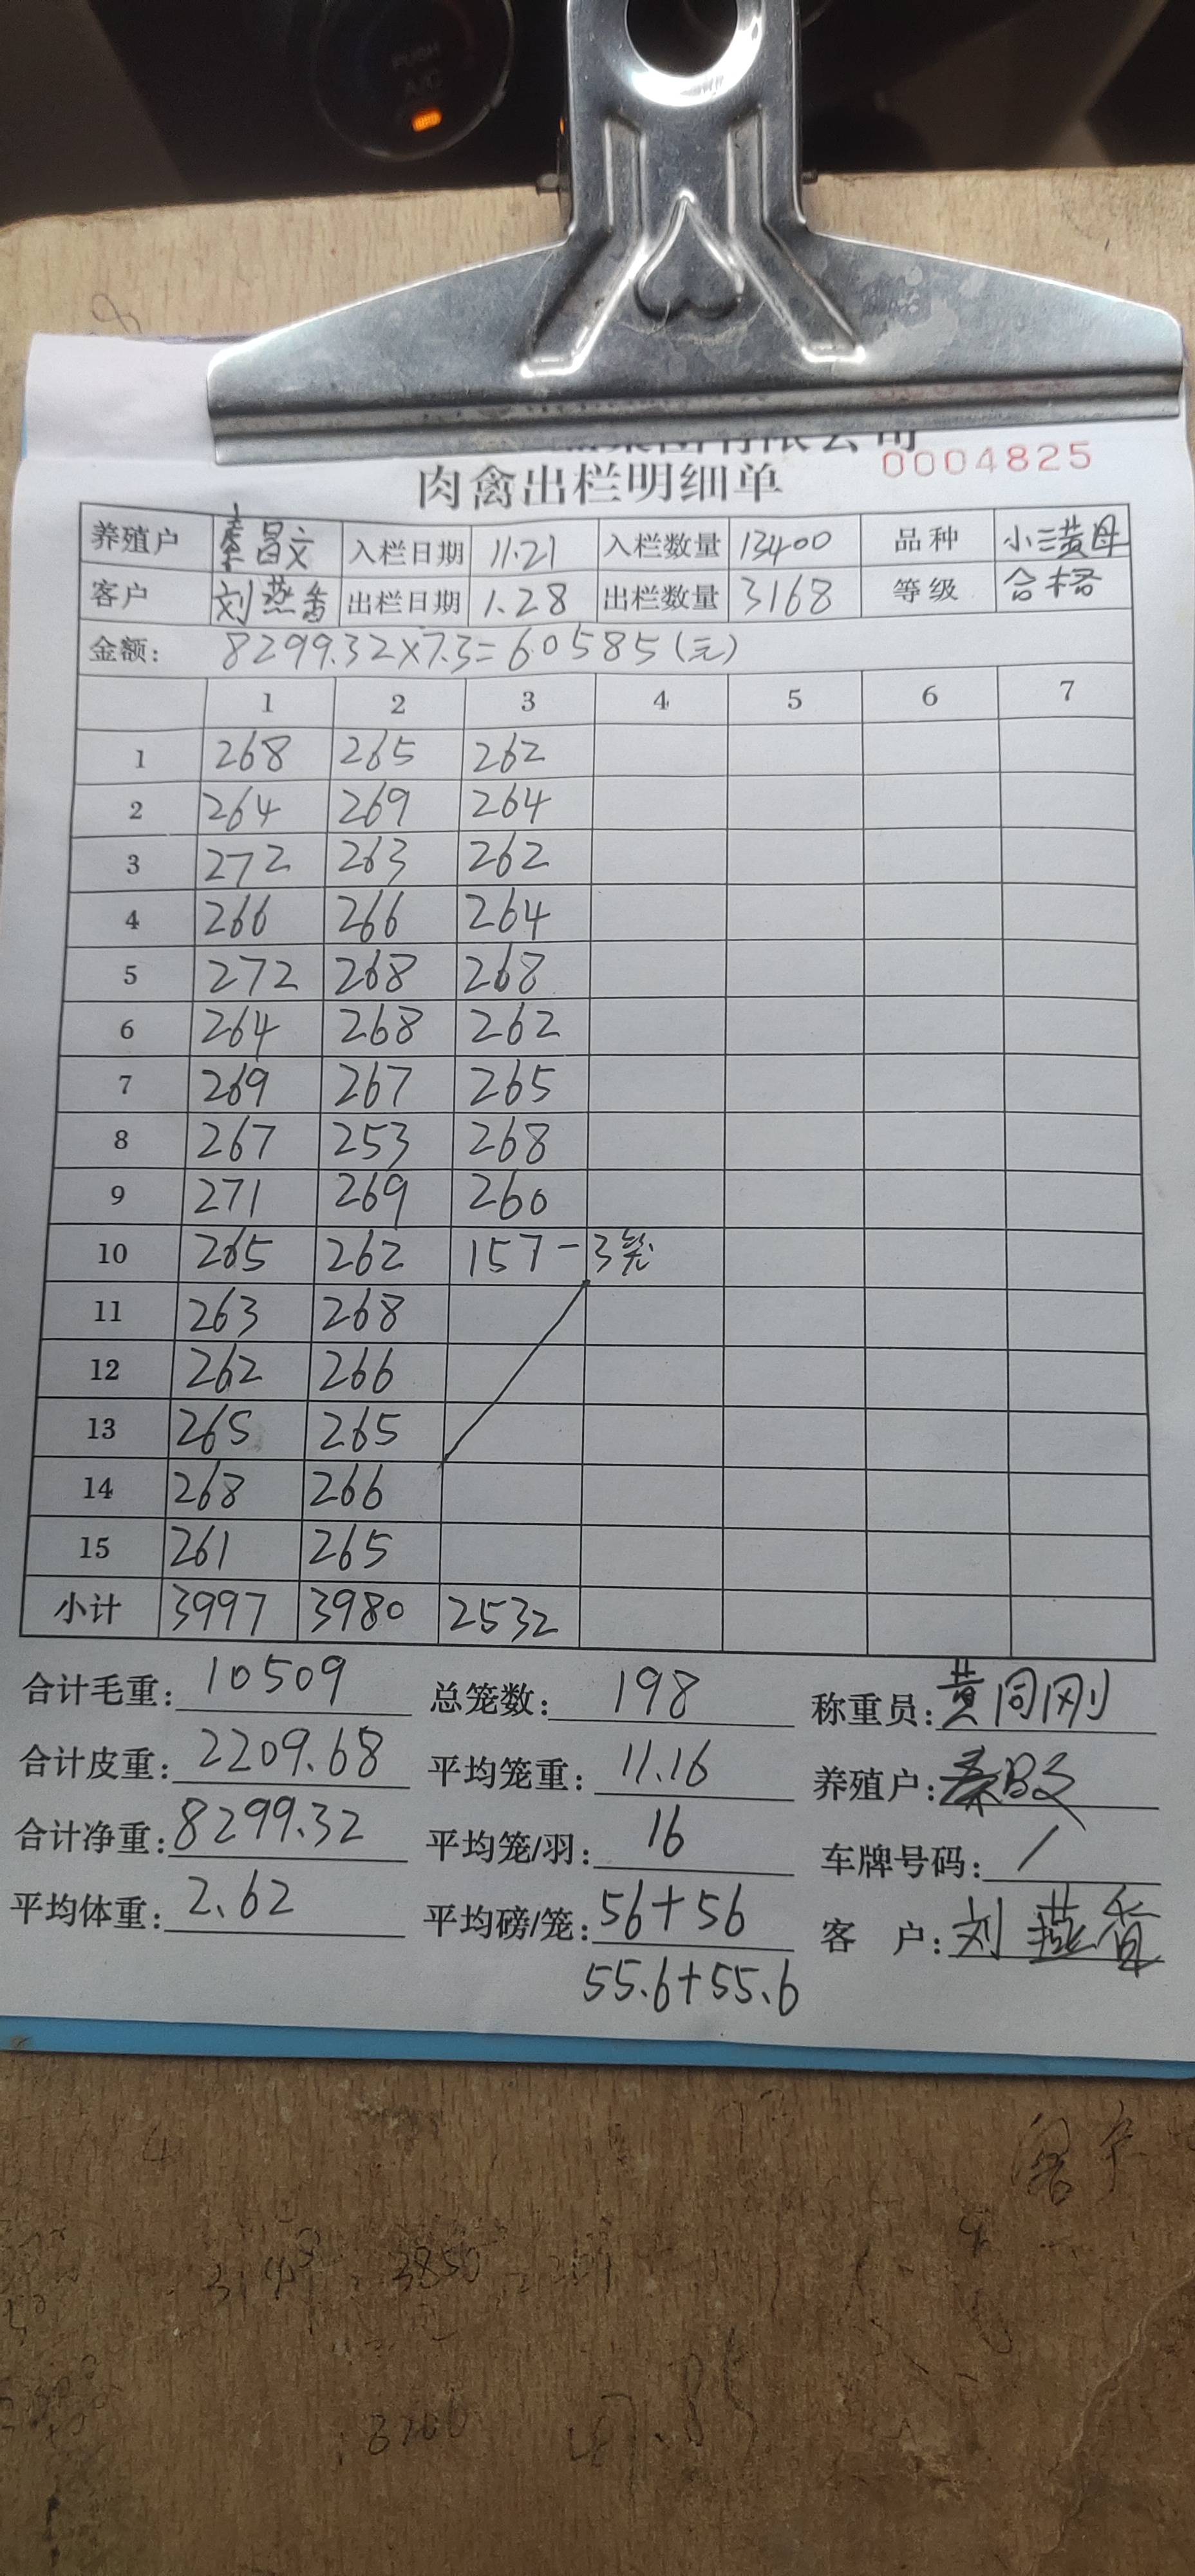 集团有限公司
肉禽出栏明细单 0004825
养殖户 秦昌文 入栏日期 11.21 入栏数量 13400 品种 小三黄母
客户 刘燕香 出栏日期 1.28 出栏数量 3168 等级 合格
金额: 8299.32×7.3=60585(元)
1 2 3 4 5 6 7
1 268 265 262
2 264 269 264
3 272 263 262
4 266 266 264
5 272 268 268
6 264 268 262
7 269 267 265
8 267 253 268
9 271 269 260
10 265 262 157-3笼
11 263 268
12 262 266
13 265 265
14 268 266
15 261 265
小计 3997 3980 2532
合计毛重: 10509 总笼数: 198 称重员: 黄同刚
合计皮重: 2209.68 平均笼重: 11.16 养殖户: 秦昌文
合计净重: 8299.32 平均笼/羽: 16 车牌号码: /
平均体重: 2.62 平均磅/笼: 56+56 客 户: 刘燕香
55.6+55.6